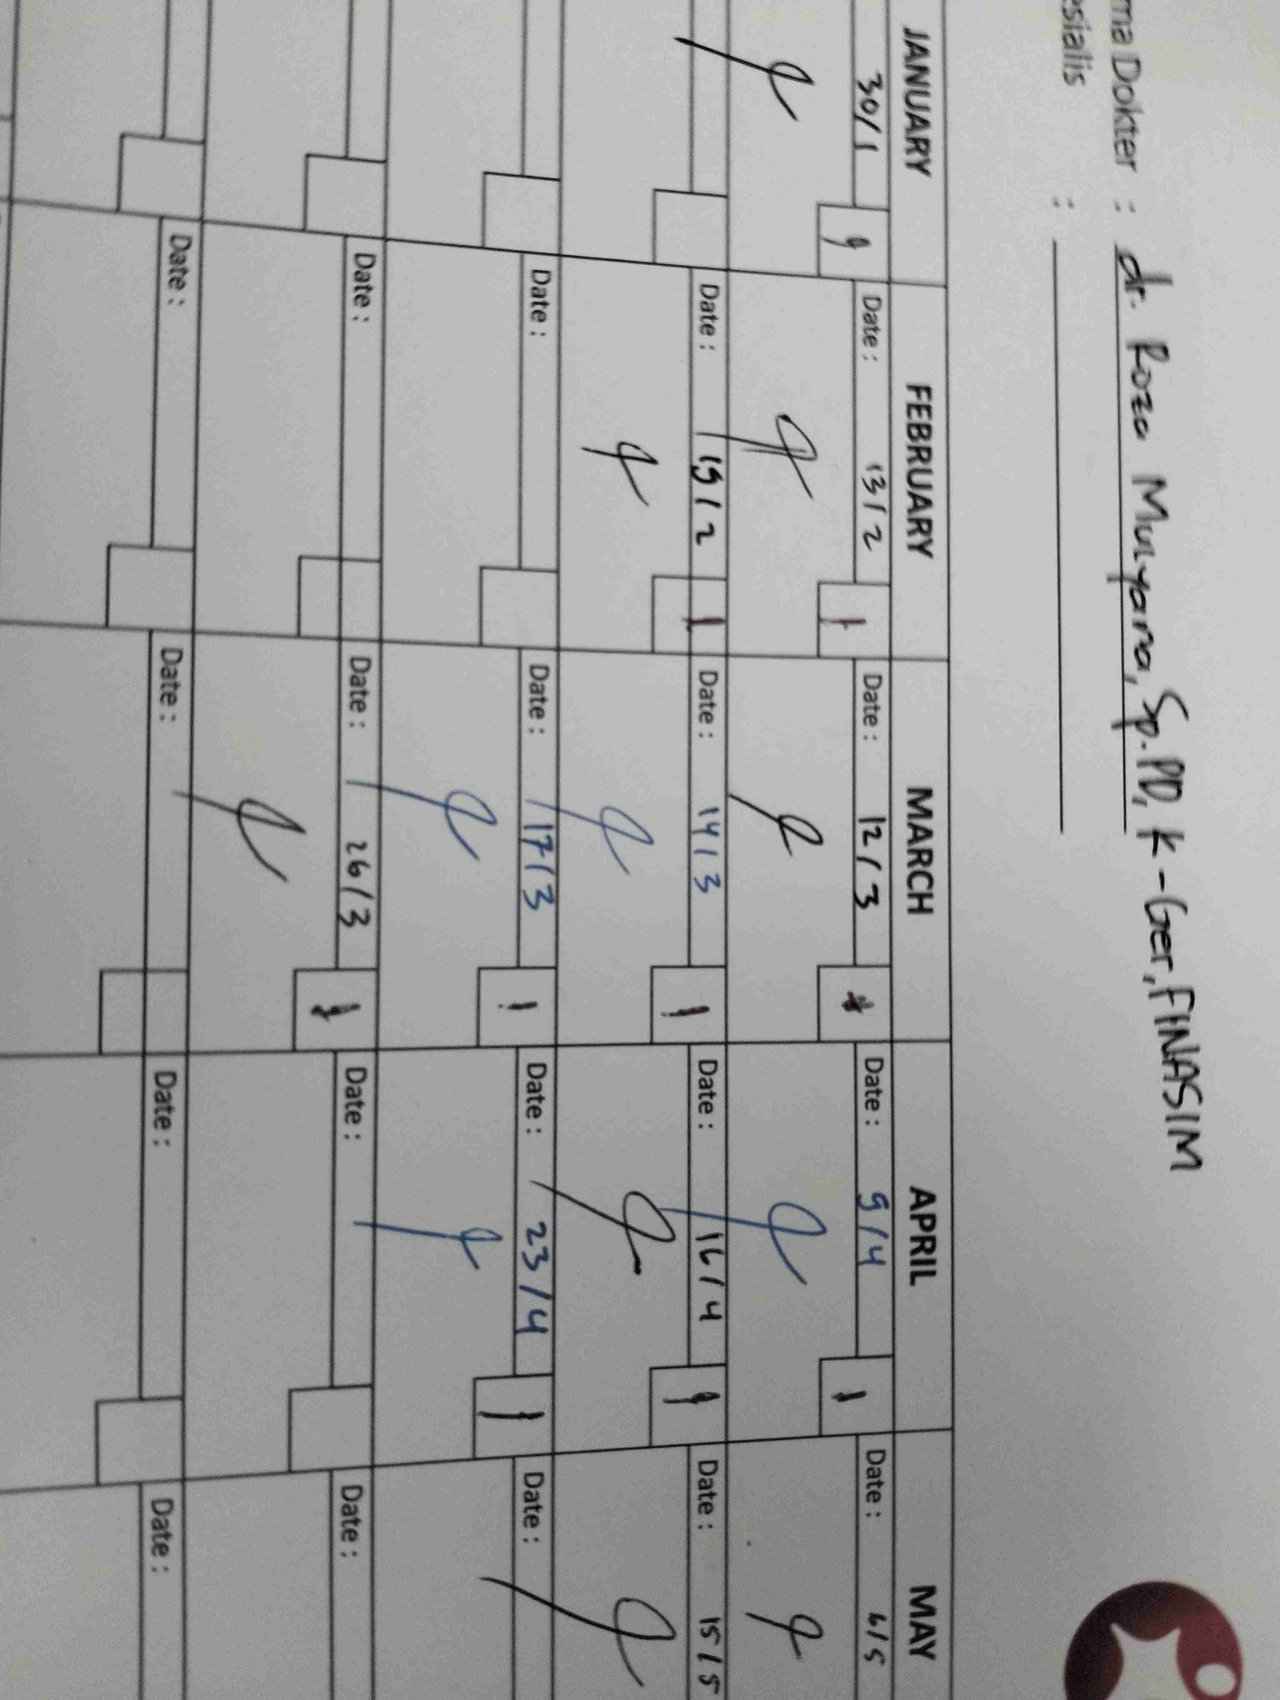 ma Dokter : dr. Roza Mulyana, Sp.PD, K-Ger, FINASIM
esialis :
JANUARY FEBRUARY MARCH APRIL MAY
30/1 Date : 13/2 Date : 12/3 Date : 9/4 Date : 6/5
Date : 19/2 Date : 14/3 Date : 16/4 Date : 15/5
Date : Date : 17/3 Date : 23/4 Date :
Date : Date : 26/3 Date : Date :
Date : Date : Date : Date :